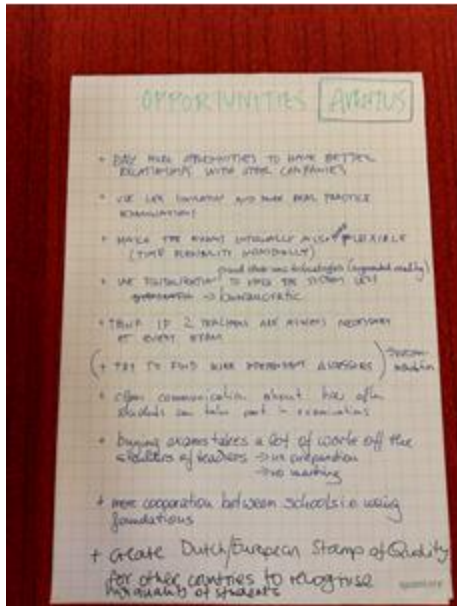 OPPORTUNITIES AVENTUS
+ MORE OPPORTUNITIES TO HAVE BETTER
RELATIONSHIPS WITH OTHER COMPANIES
+ USE LESS SIMULATION AND MORE REAL PRACTICE
EXAMINATIONS
+ MAKE THE EXAMS INTERNALLY MORE FLEXIBLE
(TIME FLEXIBILITY INDIVIDUALLY)
technologies (augmented reality)
+ USE TO MAKE THE SYSTEM LESS
→ bureaucratic
+ THINK IF 2 TEACHERS ARE ALWAYS NECESSARY
AT EVERY EXAM
(+ TRY TO FIND MORE INDEPENDENT ASSESSORS)
+ open communication about how often
students can take part in examinations
+ buying exams takes a lot of work off the
shoulders of teachers → in preparation
→ no marking
+ more cooperation between schools i.e. using
foundations
+ Create Dutch/European Stamp of Quality
for other countries to recognise
quality of students